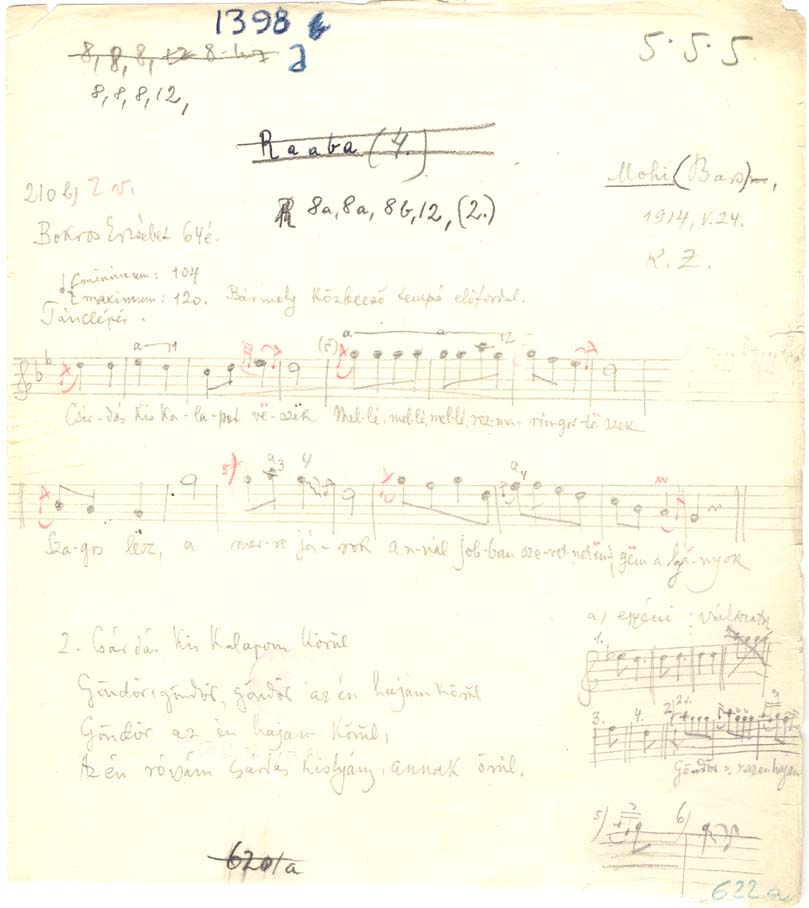 1398
8, 8, 8, 12
5. 5. 5
8, 8, 8, 12,
Raaba (4.)
210 b) 2 v.
Mohi (Bars),
R 8a, 8a, 8b, 12, (2.)
1914, V. 24.
Bokros Erzsébet 64 é.
K. Z.
minimum: 104
maximum: 120. Bármely közbeeső tempó előfordul.
Tánclépés.
a
(5) a a 12
Csár-dás kis ka-la-pot vë-szëk Mel-lé, mel-lé, mel-lé, roz-ma-rin-got të szek
5) a 3 4 a 4
Sza-gos lësz, a mer-re já-rok an-nál job-ban sze-ret-nek a lyá-nyok
a) eszéni
1.
2. Csárdás kis kalapom körül
Göndör, göndör, göndör az én hajam körül
3. 4. 2.
Göndör az én hajam körül,
Göndör
Az én rózsám sárdás kislyány, annak örül.
5) 6)
620/a
622 a